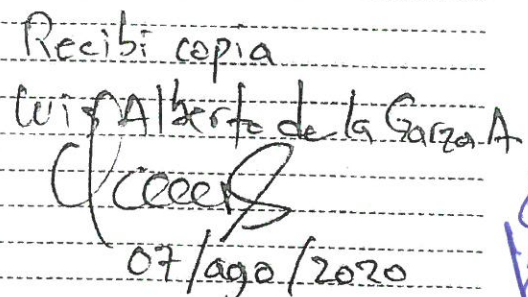 Recibi copia
Luis Alberto de la Garza A
07/ago/2020